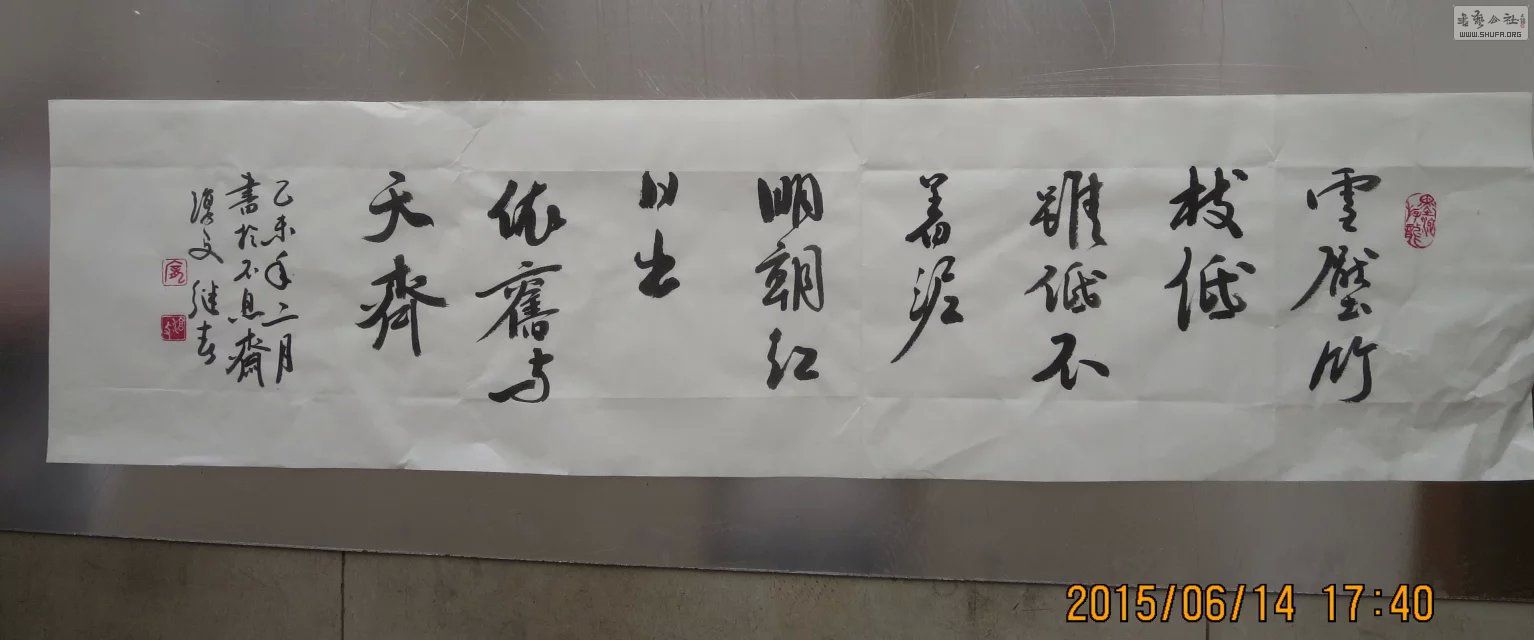 雪壓竹
枝低
雖低不
着泥
明朝紅
日出
依舊与
天齊
乙未年三月
書於不息齋
繼春
書藝公社
WWW.SHUFA.ORG
2015/06/14 17:40